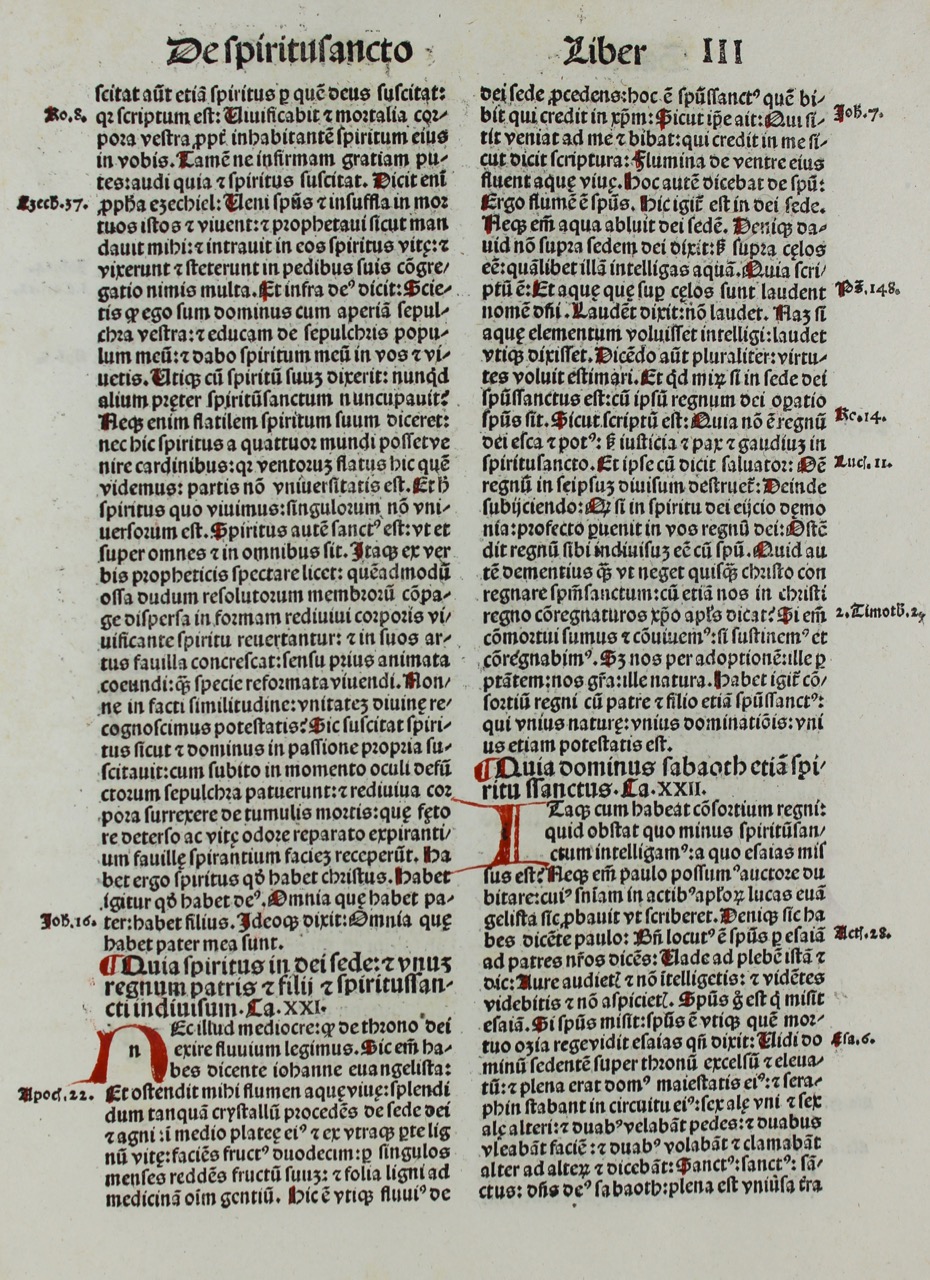 De spiritusancto
Liber III
scitat aūt etiā spiritus ꝑ quē deus suscitat:
Ro.8.
qꝛ scriptum est: Uiuificabit ⁊ mortalia cor-
pora vestra ꝓpt̄ inhabitantē spiritum eius
in vobis. Tamē ne infirmam gratiam pu-
tes: audi quia ⁊ spiritus suscitat. Dicit enī
Ezech.37.
ꝓpħa ezechiel: Ueni spūs ⁊ insuffla in mor
tuos istos ⁊ viuent: ⁊ prophetaui sicut man
dauit mihi: ⁊ intrauit in eos spiritus vitę: ⁊
vixerunt ⁊ steterunt in pedibus suis cōgre-
gatio nimis multa. Et infra deꝰ dicit: Scie-
tis ꝙ ego sum dominus cum aperiā sepul-
chra vestra: ⁊ educam de sepulchris popu-
lum meū: ⁊ dabo spiritum meū in vos ⁊ vi-
uetis. Utiqꝫ cū spiritū suuꝫ dixerit: nunqd
alium pręter spiritūsanctum nuncupauit?
Neqꝫ enim flatilem spiritum suum diceret:
nec hic spiritus a quattuor mundi posset ve
nire cardinibus: qꝛ ventoruꝫ flatus hic quē
videmus: partis nō vniuersitatis est. Et ħ
spiritus quo viuimus: singulorum nō vni-
uersorum est. Spiritus autē sanctꝰ est: vt et
super omnes ⁊ in omnibus sit. Itaqꝫ ex ver
bis propheticis spectare licet: quēadmodū
ossa dudum resolutorum membrorū cōpa-
ge dispersa in formam rediuiui corporis vi
uificante spiritu reuertantur: ⁊ in suos ar-
tus fauilla concrescat: sensu prius animata
coeundi: qꝫ̄ specie reformata viuendi. Non-
ne in facti similitudine: vnitateꝫ diuinę re-
cognoscimus potestatis? Sic suscitat spiri-
tus sicut ⁊ dominus in passione propria su-
scitauit: cum subito in momento oculi defū
ctorum sepulchra patuerunt: ⁊ rediuiua cor
pora surrexere de tumulis mortis: quę fęto
re deterso ac vitę odore reparato expiranti-
um fauillę spirantium facieꝫ receperūt. Ha
bet ergo spiritus qđ habet christus. Habet
igitur qđ habet deꝰ. Omnia quę habet pa-
Joh.16.
ter: habet filius. Ideoqꝫ dixit: Omnia quę
habet pater mea sunt.
¶ Quia spiritus in dei sede: ⁊ vnuꝫ
regnum patris ⁊ filij ⁊ spiritussan-
cti indiuisum. Ca. XXI.
n Ec illud mediocre: ꝙ de throno dei
exire fluuium legimus. Sic em̄ ha-
bes dicente iohanne euangelista:
Apocĺ.22.
Et ostendit mihi flumen aquę viuę: splendi
dum tanquā crystallū procedēs de sede dei
⁊ agni: ī medio plateę eiꝰ ⁊ ex vtraqꝫ ꝑte lig
nū vitę: faciēs fructꝰ duodecim: ꝑ singulos
menses reddēs fructū suuꝫ: ⁊ folia ligni ad
medicinā oīm gentiū. Hic ē vtiqꝫ fluuiꝰ de
dei sede ꝓcedens: hoc ē spūssanctꝰ quē bi-
Joh.7.
bit qui credit in xp̄m: Sicut ip̄e ait: Qui si-
tit veniat ad me ⁊ bibat: qui credit in me si-
cut dicit scriptura: Flumina de ventre eius
fluent aquę viuę. Hoc autē dicebat de spū:
Ergo flumē ē spūs. Hic igit̄ est in dei sede.
Neqꝫ em̄ aqua abluit dei sedē. Deniqꝫ da-
uid nō supra sedem dei dixit: ꞩꝫ supra cęlos
eē: quālibet illā intelligas aquā. Quia scri-
Ps̄.148.
ptū ē: Et aquę quę suꝑ cęlos sunt laudent
nomē dñi. Laudēt dixit: nō laudet. Naꝫ si
aquę elementum voluisset intelligi: laudet
vtiqꝫ dixisset. Dicēdo aūt pluraliter: virtu-
tes voluit estimari. Et qd miꝝ si in sede dei
spūssanctus est: cū ipsū regnum dei oꝑatio
Ro.14.
spūs sit. Sicut scriptū est: Quia nō ē regnū
dei esca ⁊ potꝰ: ꞩꝫ iusticia ⁊ pax ⁊ gaudiuꝫ in
Lucĺ.11.
spiritusancto. Et ipse cū dicit saluator: Oē
regnū in seipsuꝫ diuisum destruet̄: Deinde
subijciendo: Qꝫ si in spiritu dei eijcio demo
nia: profecto ꝑuenit in vos regnū dei: Ostē
dit regnū sibi indiuisuꝫ eē cū spū. Quid au
tē dementius qꝫ̄ vt neget quisqꝫ̄ christo con
regnare spm̄sanctum: cū etiā nos in christi
2.Timoth.2.
regno cōregnaturos xp̄o apl̄s dicat? Si em̄
cōmortui sumus ⁊ cōuiuemꝰ: si sustinemꝰ et
cōregnabimꝰ. Sꝫ nos per adoptionē: ille ꝑ
ptātem: nos gr̄a: ille natura. Habet igit̄ cō-
sortiū regni cū patre ⁊ filio etiā spūssanctꝰ:
qui vnius naturę: vnius dominatiōis: vni
us etiam potestatis est.
¶ Quia dominus sabaoth etiā spi-
ritussanctus. Ca. XXII.
I Taqꝫ cum habeat cōsortium regni:
quid obstat quo minus spiritūsan-
ctum intelligamꝰ: a quo esaias mis
sus est? Neqꝫ em̄ paulo possumꝰ auctore du
bitare: cuiꝰ sn̄iam in actibꝰ apl̄oꝝ lucas euā
gelista sic ꝓbauit vt scriberet. Deniqꝫ sic ha
Actĺ.28.
bes dicēte paulo: Bn̄ locutꝰ ē spūs ꝑ esaiā
ad patres nr̄os dicēs: Uade ad plebē istā ⁊
dic: Aure audietĺ ⁊ nō ītelligetis: ⁊ vidētes
videbitis ⁊ nō aspicietĺ. Spūs g̊ est q̇ misit
esaiā. Si spūs misit: spūs ē vtiqꝫ quē mor-
Esa.6.
tuo ozia rege vidit esaias qn̄ dixit: Uidi do
minū sedentē super thronū excelsū ⁊ eleua-
tū: ⁊ plena erat domꝰ maiestatis eiꝰ: ⁊ sera-
phin stabant in circuitu eiꝰ: sex alę vni ⁊ sex
alę alteri: ⁊ duabꝰ velabāt pedes: ⁊ duabus
vleabāt faciē: ⁊ duabꝰ volabāt ⁊ clamabāt
alter ad alteꝝ ⁊ dicebāt: Sanctꝰ: sanctꝰ: sā-
ctus: dñs deꝰ sabaoth: plena est vniūsa tr̄a